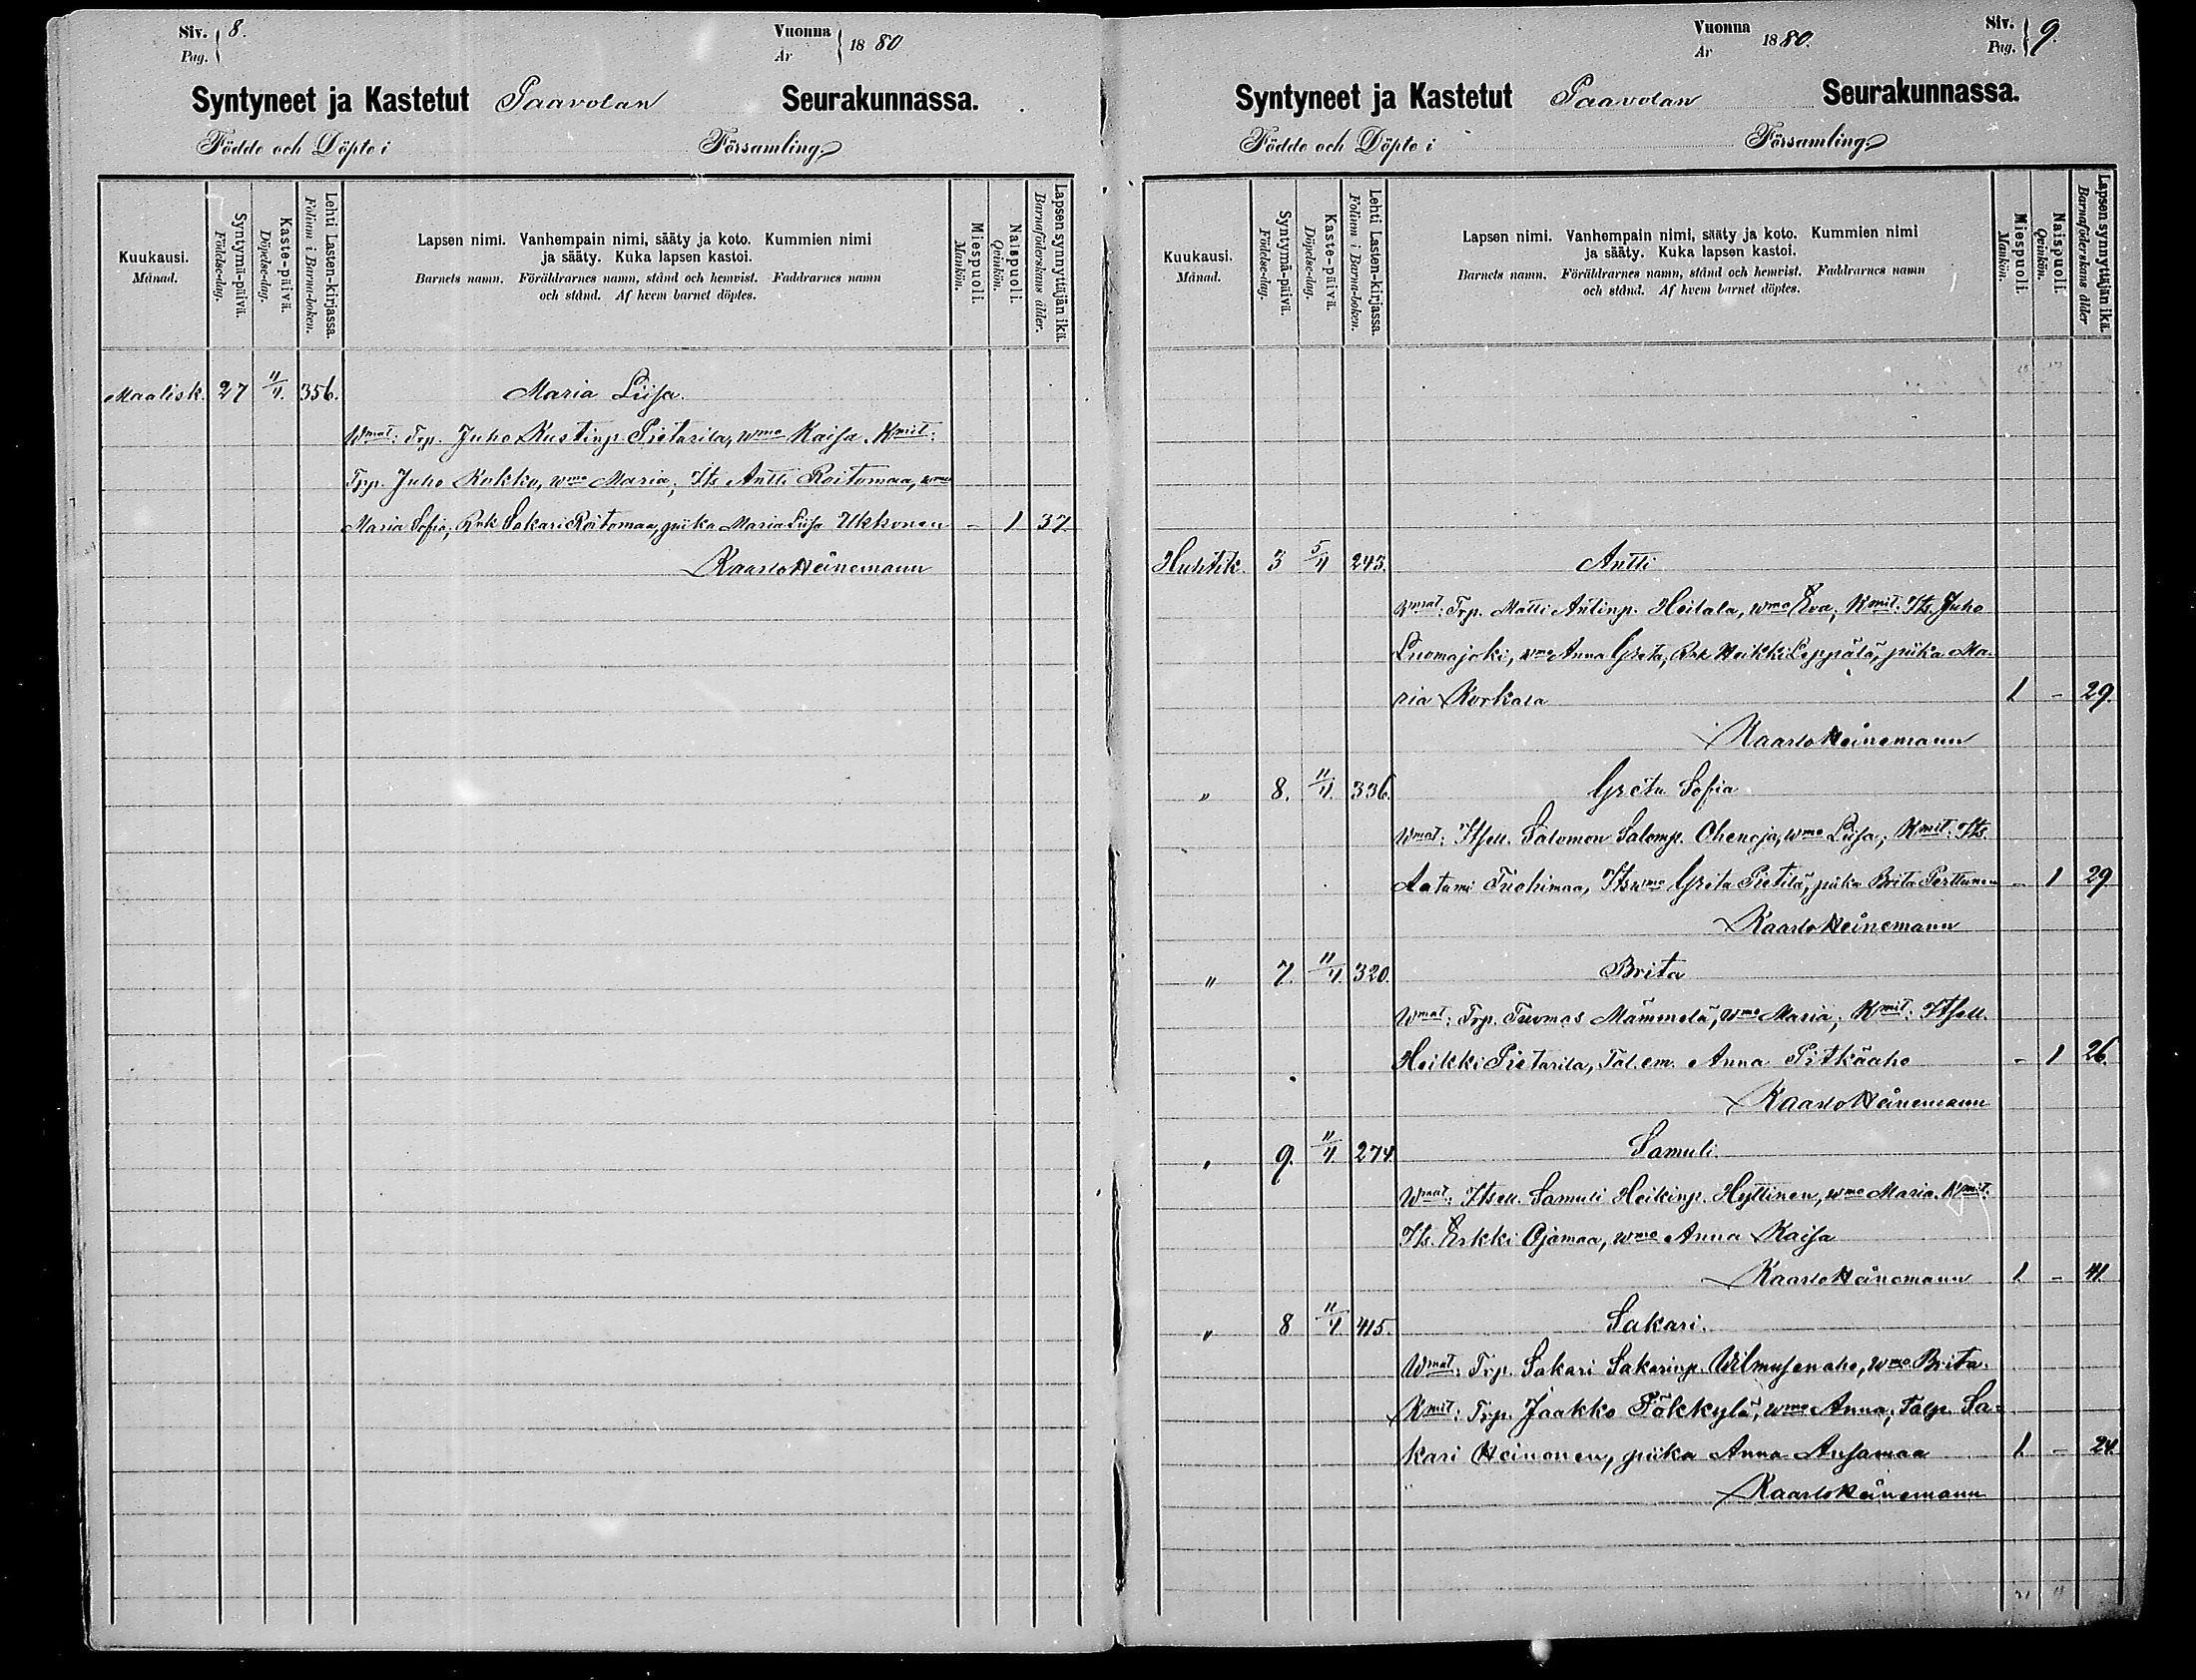 Siv. 8.
Pag.
Vuonna 1880
År
Syntyneet ja Kastetut Paavolan Seurakunnassa.
Födde och Döpte i Församling.
Kuukausi.
Månad.
Syntymä-päivä.
Födelse-dag.
Kaste-päivä.
Döpelse-dag.
Lehti Lasten-kirjassa.
Folium i Barna-boken.
Lapsen nimi. Vanhempain nimi, sääty ja koto. Kummien nimi
ja sääty. Kuka lapsen kastoi.
Barnets namn. Föräldrarnes namn, stånd och hemvist. Faddrarnes namn
och stånd. Af hvem barnet döptes.
Miespuoli.
Mankön.
Naispuoli.
Qvinkön.
Lapsen synnyttäjän ikä.
Barnaföderskans ålder.
Maalisk. 27 11/4. 356. Maria Liisa.
Wmat: Trp. Juho Kustinp. Pietarila, wmo Kaisa. Kmit:
Trp. Juho Kokko, wmo Maria; Its Antti Roitomaa, wmo
Maria Sofia; Rnk Sakari Roitomaa, piika Maria Liisa Ukkonen - 1 37.
Kaarlo Heinemann
Vuonna 1880.
År
Siv. 9.
Pag.
Syntyneet ja Kastetut Paavolan Seurakunnassa.
Födde och Döpte i Församling.
Kuukausi.
Månad.
Syntymä-päivä.
Födelse-dag.
Kaste-päivä.
Döpelse-dag.
Lehti Lasten-kirjassa.
Folium i Barna-boken.
Lapsen nimi. Vanhempain nimi, sääty ja koto. Kummien nimi
ja sääty. Kuka lapsen kastoi.
Barnets namn. Föräldrarnes namn, stånd och hemvist. Faddrarnes namn
och stånd. Af hvem barnet döptes.
Miespuoli.
Mankön.
Naispuoli.
Qvinkön.
Lapsen synnyttäjän ikä.
Barnaföderskans ålder
Huhtik. 3 5/4 243. Antti
Wmat: Trp. Matti Antinp. Heitala, wmo Eva; Kmit: Its. Juho
Luomajoki, wmo Anna Greta; Rnk Heikki Leppälä, piika Ma-
ria Korkala 1 - 29.
Kaarlo Heinemann
" 8. 11/4. 336. Greta Sofia
Wmat: Itsell. Salomon Salomp. Ohenoja, wmo Liisa; Kmit: Its.
Aatami Tuohimaa, Itswmo Greta Pietilä, piika Brita Perttunen - 1 29
Kaarlo Heinemann
" 7. 11/4. 320. Brita
Wmat: Trp. Tuomas Mämmelä, wmo Maria; Kmit: Itsell.
Heikki Pietarila, Tal. em. Anna Pitkäaho - 1 26.
Kaarlo Heinemann
" 9. 11/4. 274 Samuli.
Wmat: Itsell. Samuli Heikinp. Hyttinen, wmo Maria. Kmit:
Its. Erkki Ojamaa, wmo Anna Kaisa
Kaarlo Heinemann 1. - 41.
" 8 11/4. 415. Sakari.
Wmat: Trp. Sakari Sakarinp. Wilmusenaho, wmo Brita.
Kmit: Trp. Jaakko Tökkylä, wmo Anna; Talp. Sa-
kari Heinonen, piika Anna Ansamaa 1 - 24.
Kaarlo Heinemann